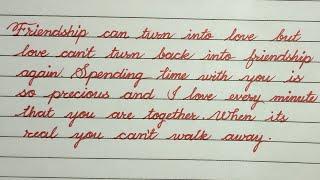 Friendship can turn into love but
love can't turn back into friendship
again Spending time with you is
so precious and I love every minute
that you are together. When its
real you can't walk away.